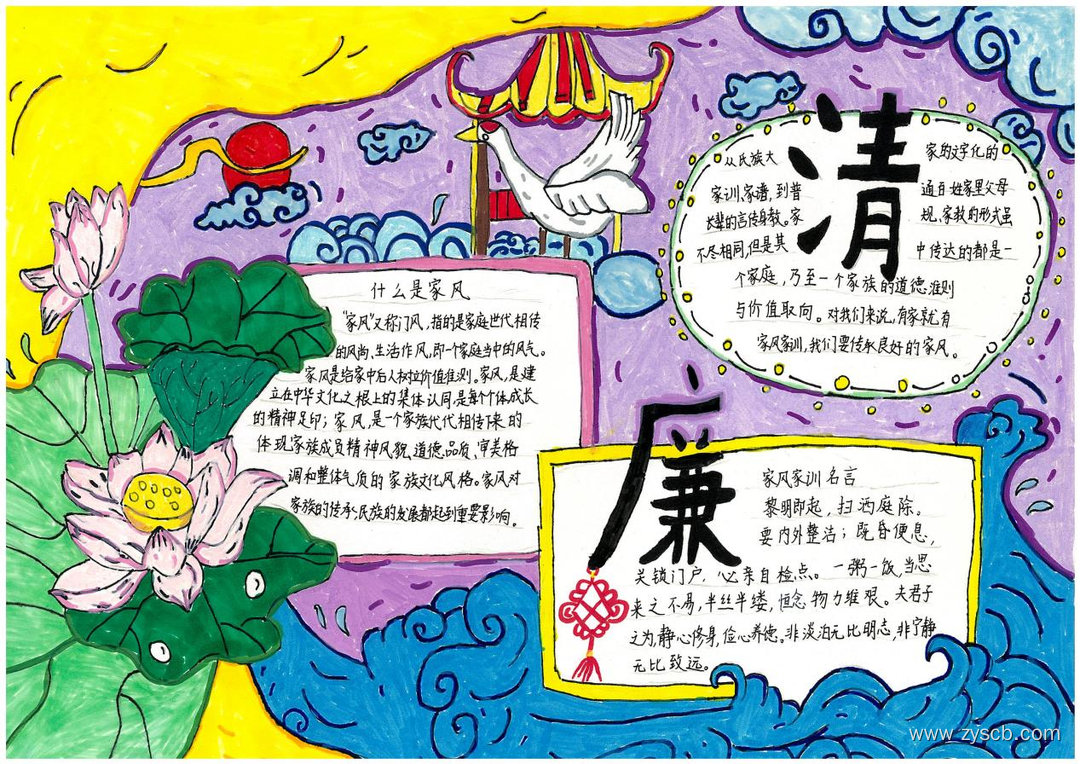 什么是家风
“家风”又称门风，指的是家庭世代相传
的风尚、生活作风，即一个家庭当中的风气。
家风是给家中后人树立价值准则。家风，是建
立在中华文化之根上的集体认同，是每个体成长
的精神足印；家风，是一个家族代代相传下来的
体现家族成员精神风貌、道德、品质、审美格
调和整体气质的家族文化风格。家风对
家族的传承、民族的发展都起到重要影响。
清
从民族大 家的文字化的
家训、家谱，到普 通百姓家里父母
长辈的言传身教。家 规、家教的形式虽
不尽相同，但是其 中传达的都是一
个家庭，乃至一个家族的道德准则
与价值取向。对我们来说，有家就有
家风家训，我们要传承良好的家风。
廉
家风家训名言
黎明即起，扫洒庭除。
要内外整洁；既昏便息，
关锁门户，必亲自检点。一粥一饭，当思
来之不易，半丝半缕，恒念物力维艰。夫君子
之为，静心修身，俭心养德。非淡泊无比明志，非宁静
无比致远。
www.zyscb.com